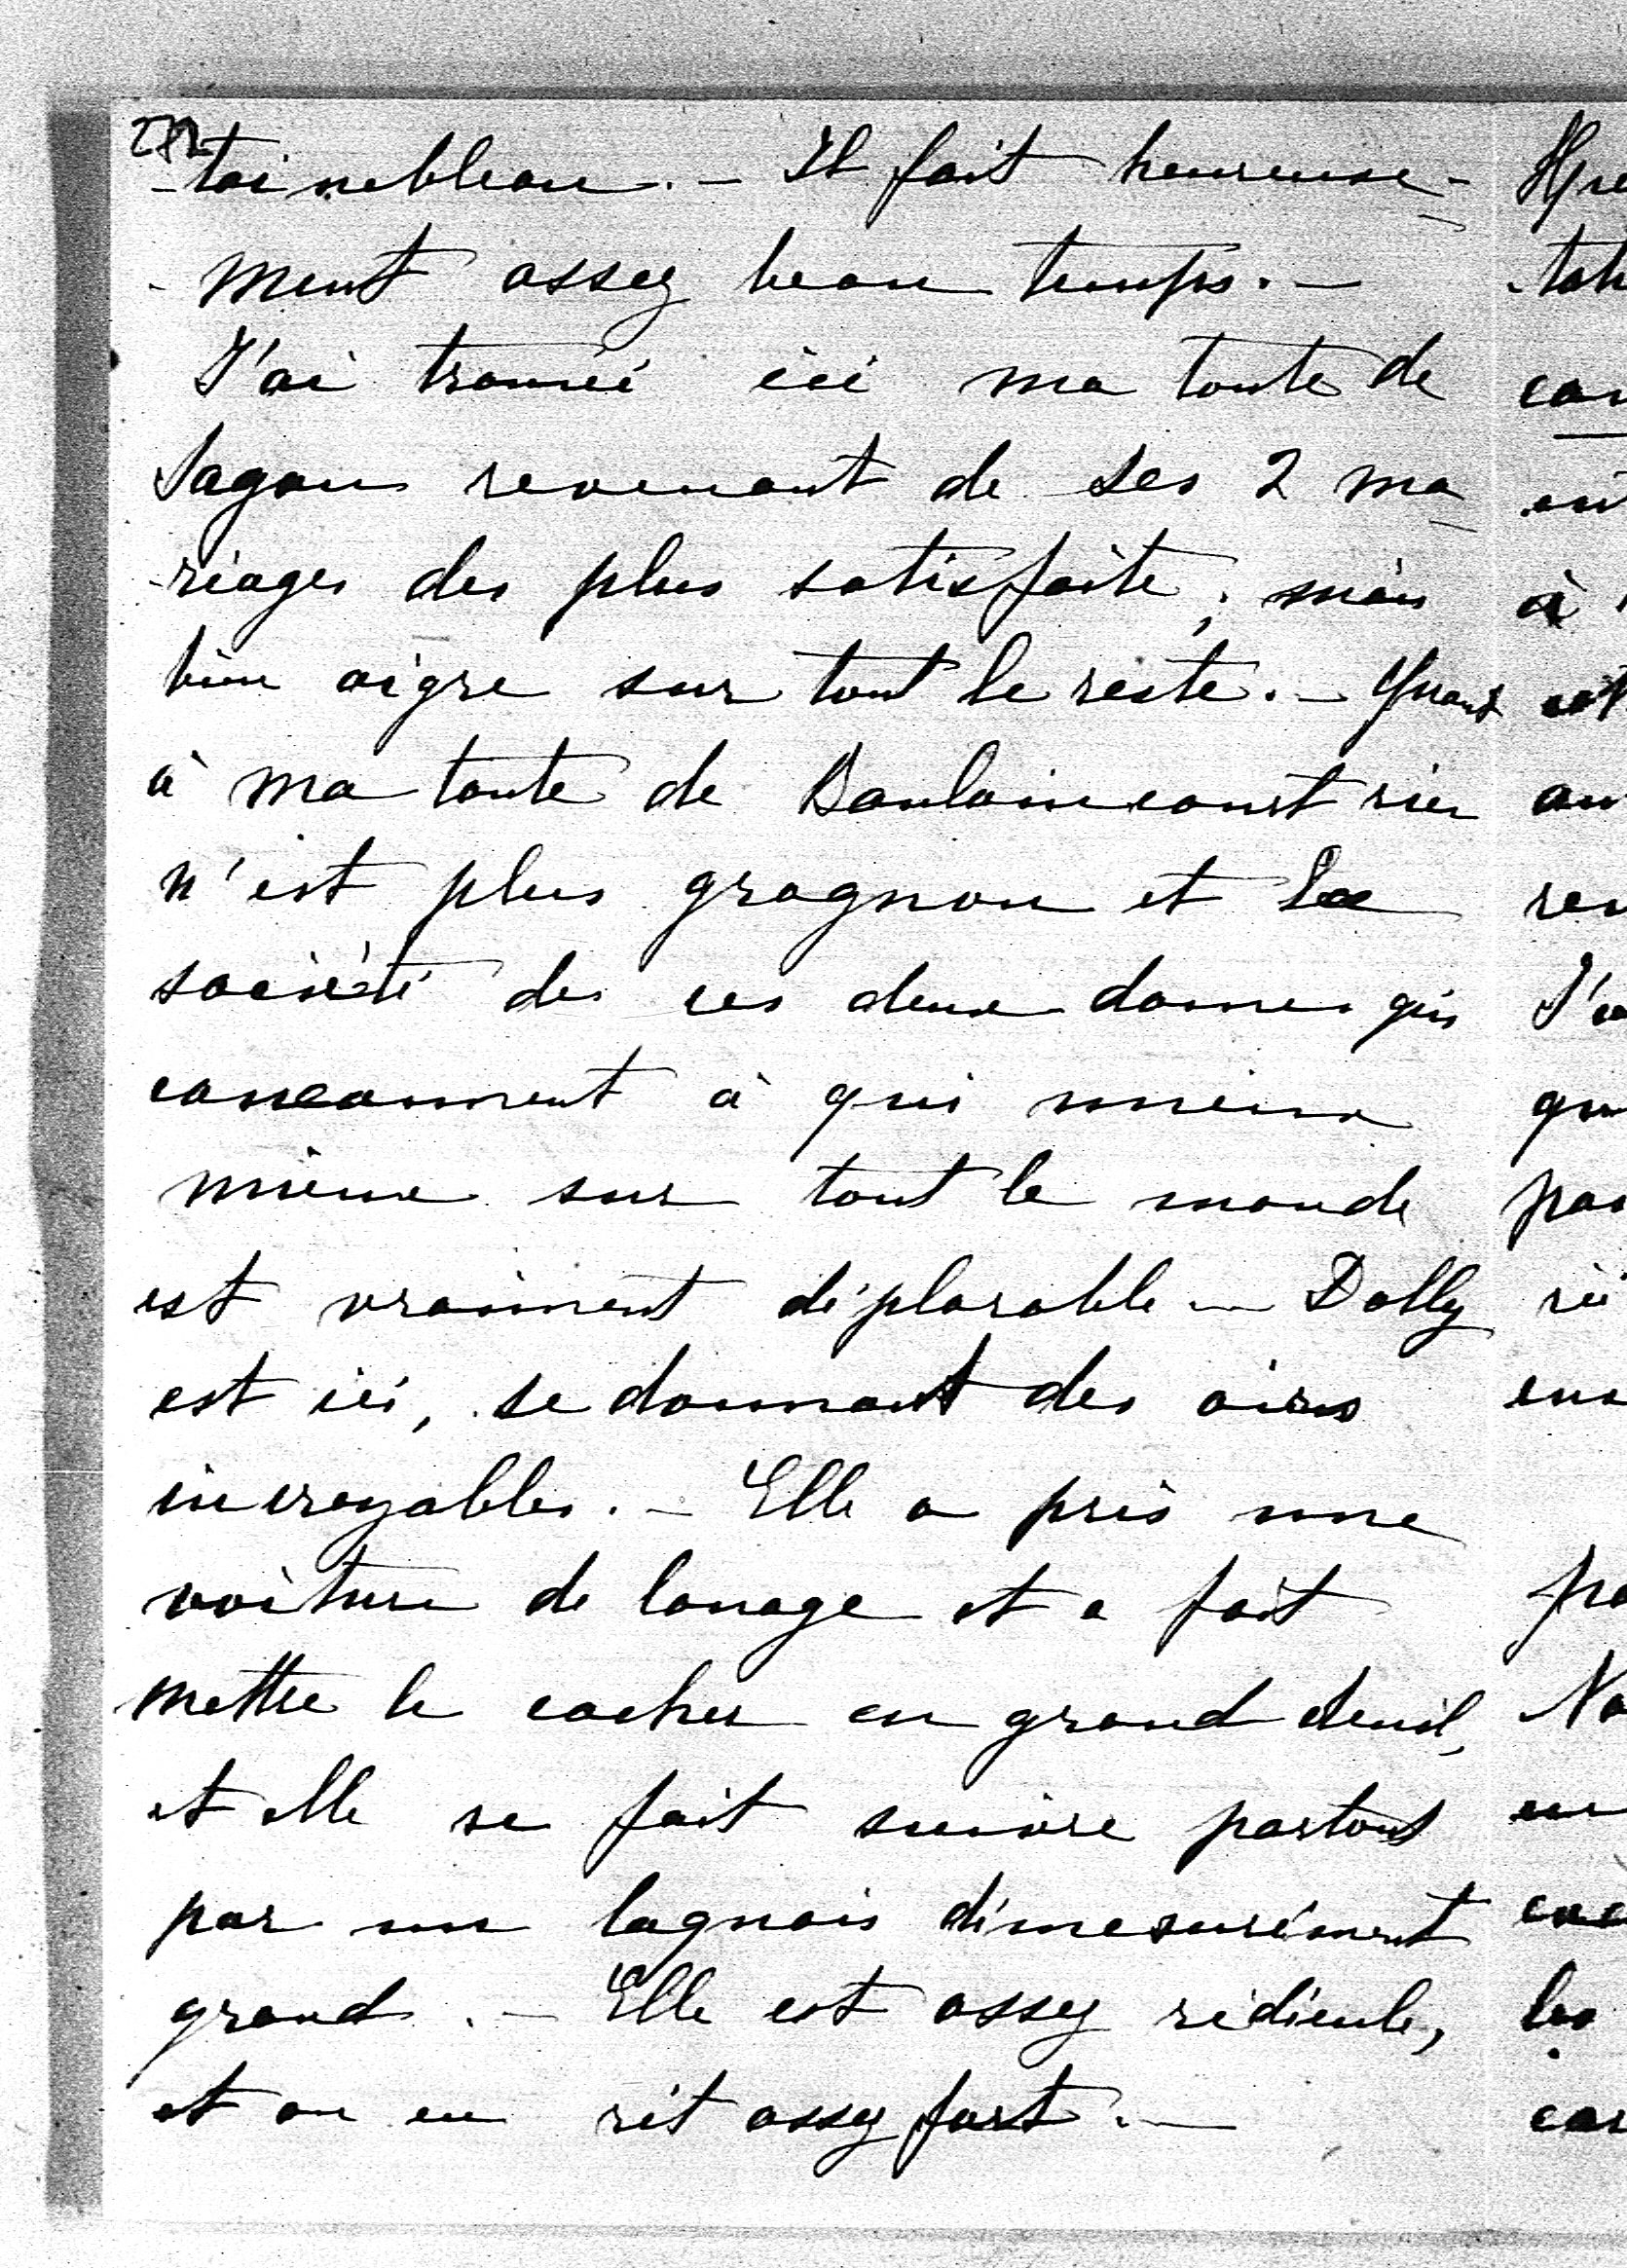 272
-tainebleau. - Il fait heureuse-
-ment assez beau temps. -
J'ai trouvé ici ma tante de
Sagan revenant de ses 2 ma-
-riages des plus satisfaite, mais
bien aigre sur tout le reste. - Quant
à ma tante de Baulaincourt rien
n'est plus grognon et la
société de ces deux dames qui
cancannent à qui mieux
mieux sur tout le monde
est vraiment déplorable - Dolly
est ici, se donnant des airs
incroyables. - Elle a pris une
voiture de louage et a fait
mettre le cocher en grand deuil,
et elle se fait suivre partout
par un laquais démesurément
grand. - Elle est assez ridicule,
et on en rit assez fort. -